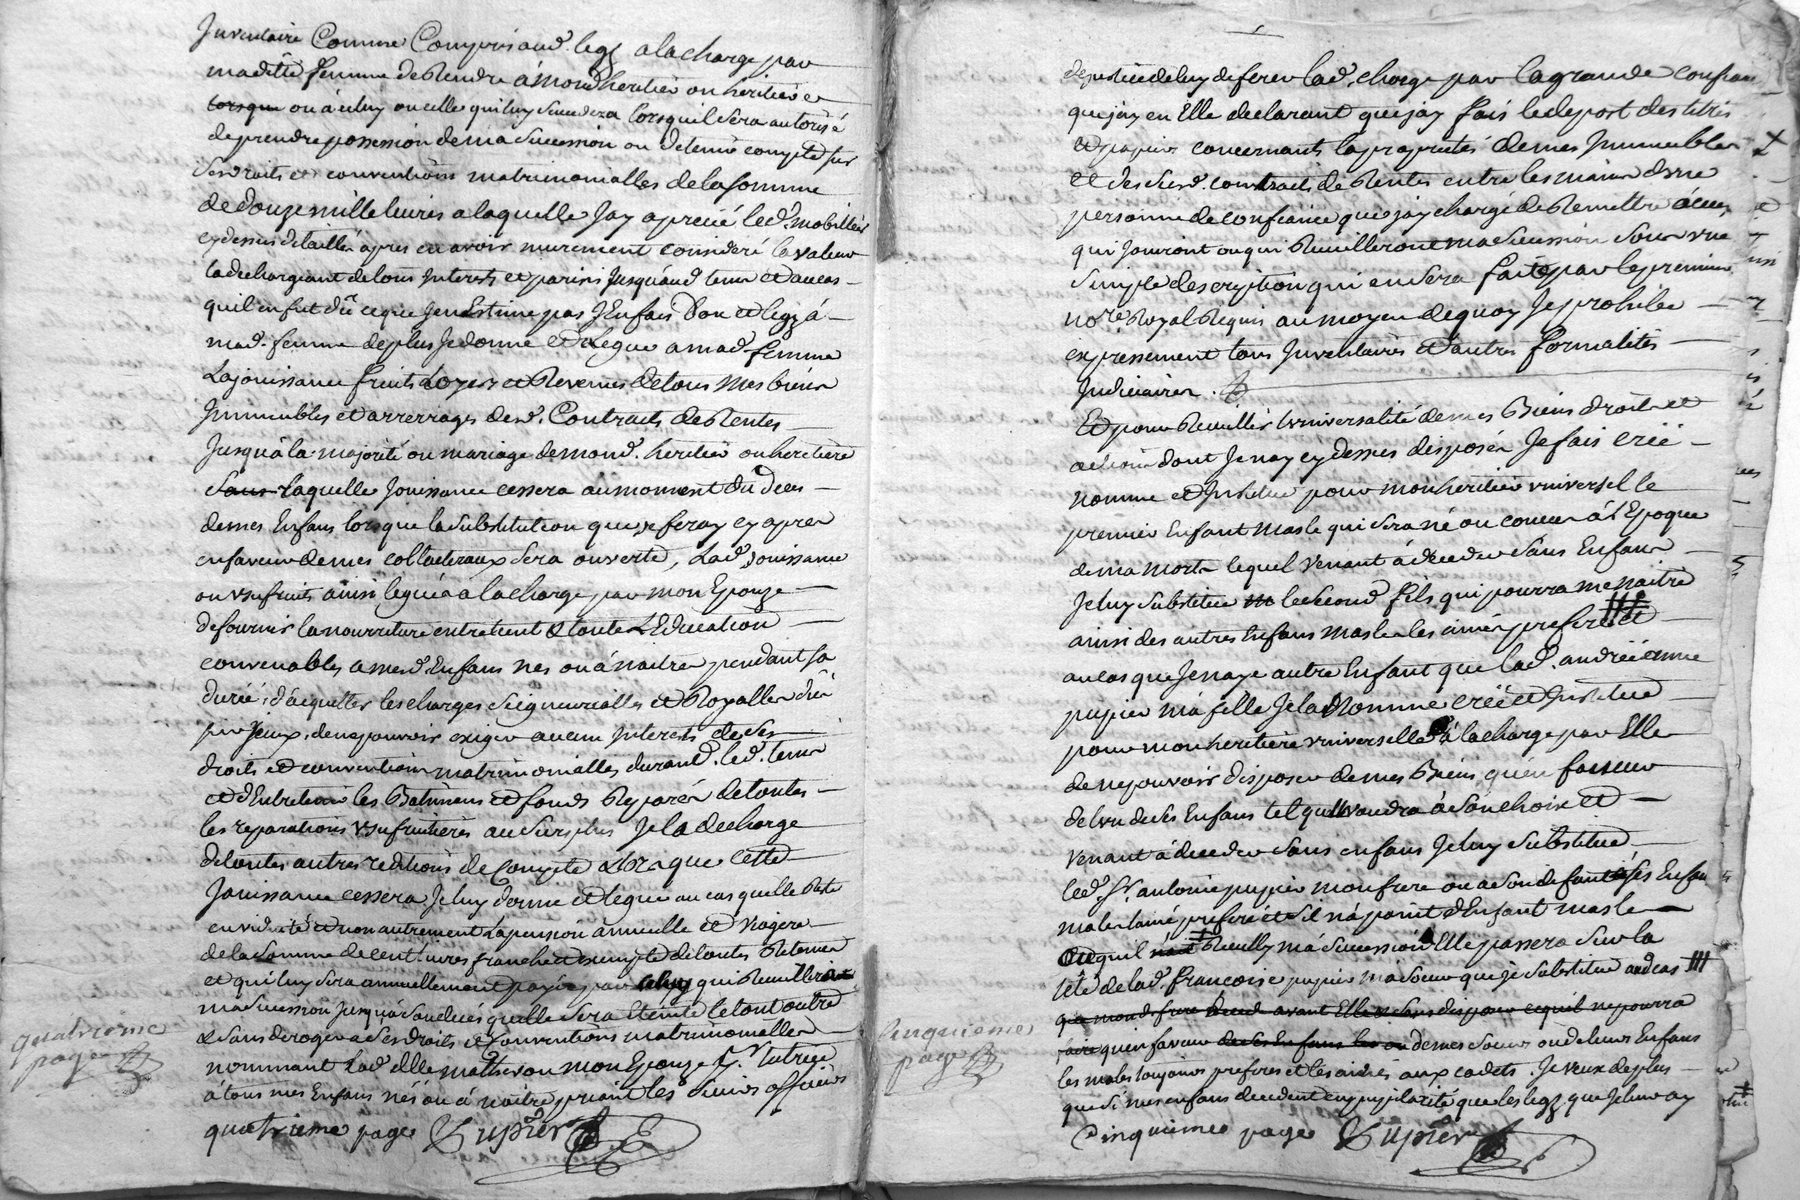 Inventaire Comme Compris aud. legz a la charge par
maditte femme de Rendre à mond heritier ou heritiere
ou à celuy ou celle qui luy succedera lorsquil sera autorisé
de prendre possession de ma succession ou detenir compte sur
ses droits et conventions matrimonialles de la somme
de douze mille livres a laquelle Jay aprecié led. mobillier
cy dessus detaillé apres en avoir murement consideré la valeur
la dechargeant de tous Interests et parisis Jusquaud tems et au cas
quil en fut dû ce que Jenestime pas J'En fais Don et legz à
mad. femme de plus Je donne et Legue a mad femme
La jouissance fruits Loyers et Revenus de tous Mes biens
Immeubles et arrerrages desd. Contracts de Rentes
Jusqu'à la majorité ou mariage de mond. heritier ou heritiere
laquelle Jouissance cessera au moment du deces
de mes Enfans lorsque la substitution que je feray cy apres
en faveur de mes collateraux sera ouverte, Lad. Jouissance
ou usufruits ainsi leguéa a la charge par mon Epouze
de fournir la nourriture entretient & toute L'Education
convenables a mesd. Enfans nes ou à naitre pendant sa
durée; d'acquitter les charges Seigneurialles et Royalles dûe
sur Iceux, de ne pouvoir exiger aucun Interests de ses
droits et conventions matrimonialles durand. led. tems
et d'Entretenir les Batimens et fonds Reparés de toutes
les reparations Usufruitieres au surplus Je la decharge
de toutes autres redditions de Compte & lorsque Cette
Jouissance cessera Je luy donne et legue au cas quelle Reste
en viduité et non autrement La pension annuelle et viagere
de la somme de cent livres franche et exempte de toutes Retenues
et qui luy sera annuellement payée par celuy qui Recuillira
ma succession Jusqu'à son deces quelle sera Eteinte le tout outre
& sans deroger a ses droits et Conventions matrimonialles
nommant Lad. dlle matheron mon Epouze Tutrice
à tous mes Enfans nés ou à naitre priant les officiers
quatrieme page Pupier
quatrieme
page
de justice de luy deferer lad. charge par la grande confian
que jay en Elle declarant que jay fais le depost des titres
et papiers concernants la proprieté de mes Immeubles
et desdits contracts de Rentes entre les mains d'une
personne de confiance que jay chargé de Remettre à ceux
qui Jouiront ou qui Recuilleront ma succession sous une
simple description qui en sera faite par le premier
nore Royal Requis au moyen de quoy Je prohibe
expressement tous Inventaires et autres formalités
Judiciaires.
Et pour Recuillir l'universalité de mes Biens droits et
actions dont Je nay cy dessus disposé Je fais creé
nomme et Institue pour mon heritier universel le
premier Enfant masle qui sera né ou conçu à l'Epoque
de ma mort lequel venant à deceder sans Enfans
Je luy substitue le second fils qui pourra me naitre
ainsi des autres Enfans masles les ainés preferé et
au cas que Je naye autre Enfant que lad. andrée anne
pupier ma fille Je la Nomme creé et Institue
pour mon heritiere universelle à la charge par Elle
de ne pouvoir disposer de mes Biens qu'en faveur
de l'un de ses Enfans tel quil voudra à son choix et
venant à deceder sans enfans Je luy substitue
led. Sr. antoine pupier mon frere ou a son defaut ses Enfans
males lainé preferé et sil n'a point d'Enfant masle
Recuilly ma succession Elle passera sur la
tête de lad. francoise pupier ma soeur que je substitue
ne pourra
qu'en faveur de mes soeurs ou de leurs Enfans
les males toujours preferés et les ainés aux cadets. Je veux de plus
que si mes enfans decedent en pupilarité que les legz que Je leur ay
Cinquieme page Pupier
Cinquieme
page